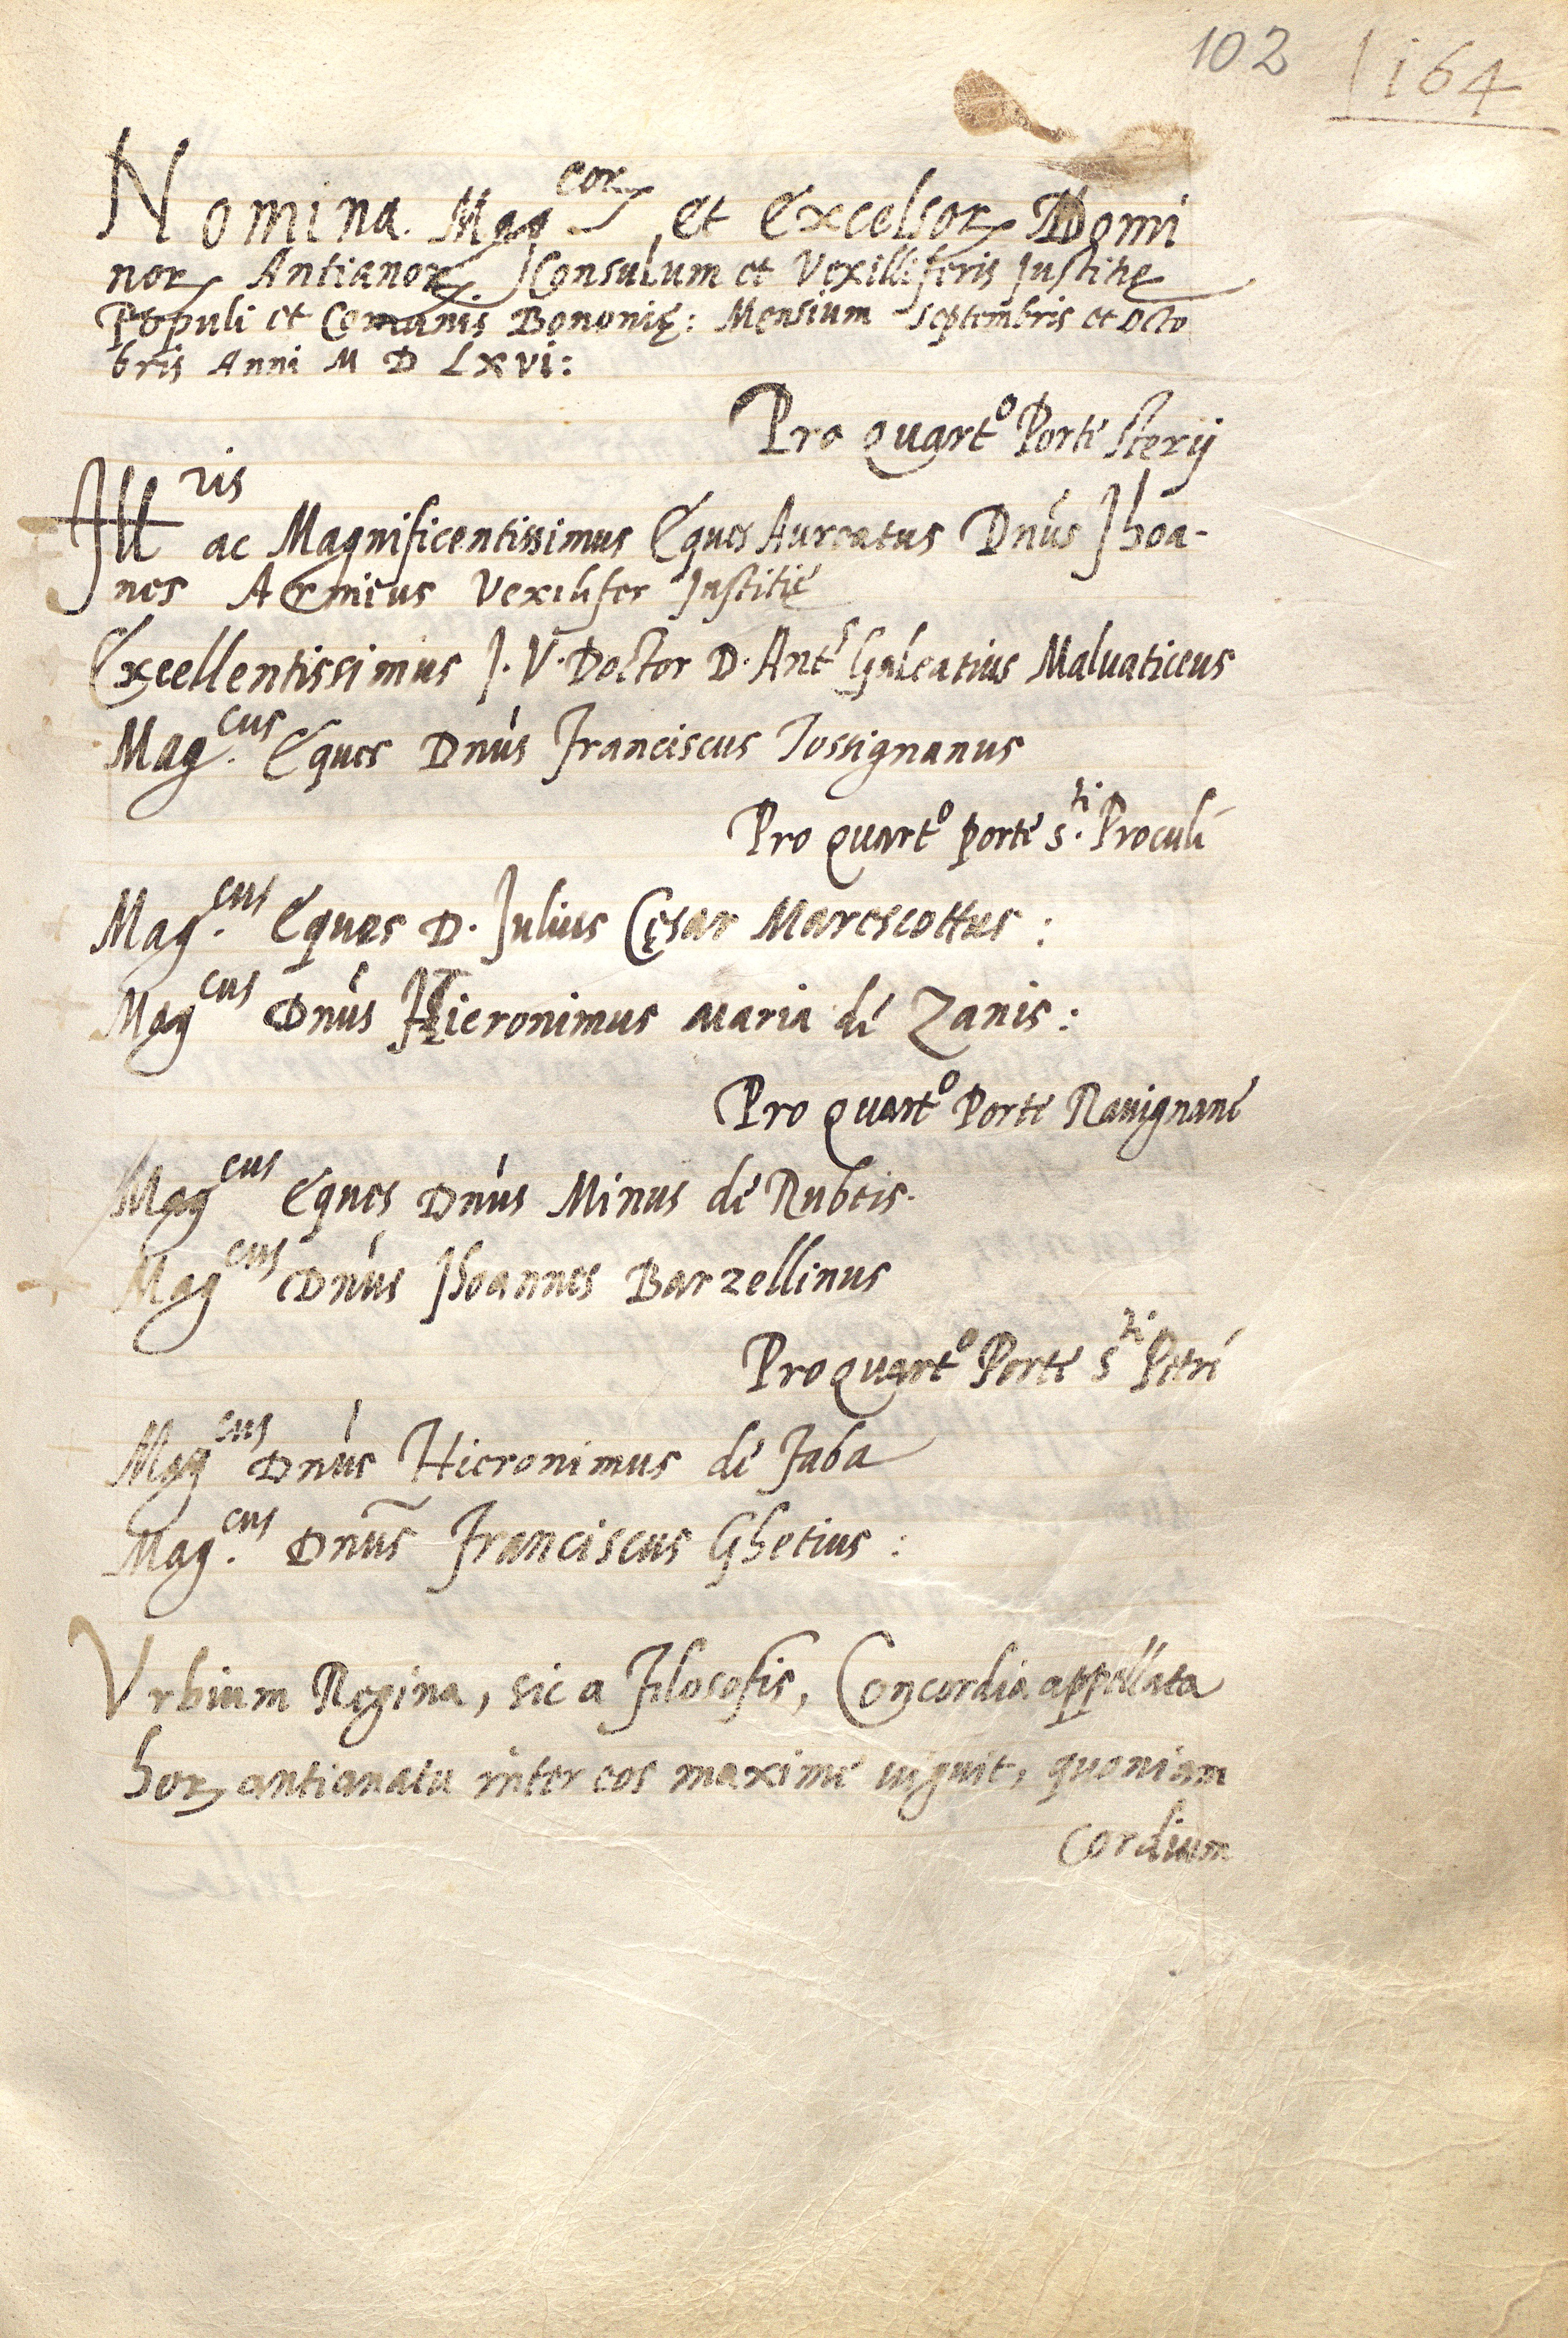 102 164
Nomina Mag.cor(um) et Excelsor(um) Domi
nor(um) Antianor(um) Consulum et Vexilliferis Justitię
Populi et Comunis Bononię: Mensium septembris et Octo
bris Anni M D Lxvi:
Pro quart.o Porte Sterij
Ill.ris ac Magnificentissimus Eques Aureatus Dnus Jhoa-
nes Vexilifer Justitie
Excellentissimus J. V. Doctor D. Ant.s Galeatius Maluaticeus
Mag.cus Eques Dnus Franciscus Tossignanus
Pro quart.o porte s.ti Proculi
Mag.cus Eques D. Julius Cęsar Marescottus:
Mag.cus Dnus Hieronimus Maria de Zanis:
Pro quart.o Porte Rauignane
Mag.cus Eques Dnus Minus de Rubeis.
Mag.cus Dnus Jhoannes Barzellinus
Pro quart.o Porte s.ti Petri
Mag.cus Dnus Hieronimus de Faba
Mag.cus Dnus Franciscus Ghetius:
Urbium Regina, sic a Filosofis, Concordia appellata
hor(um) antianatu inter eos maxime uiguit, quoniam
cordium